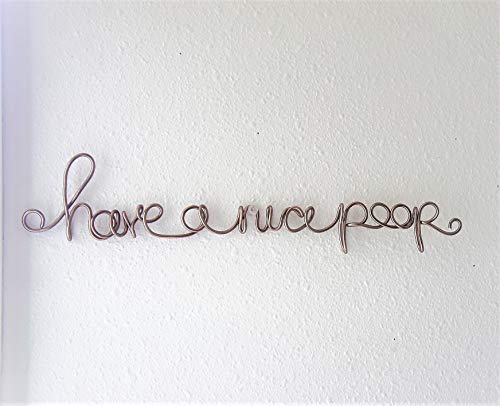 have a nice poop